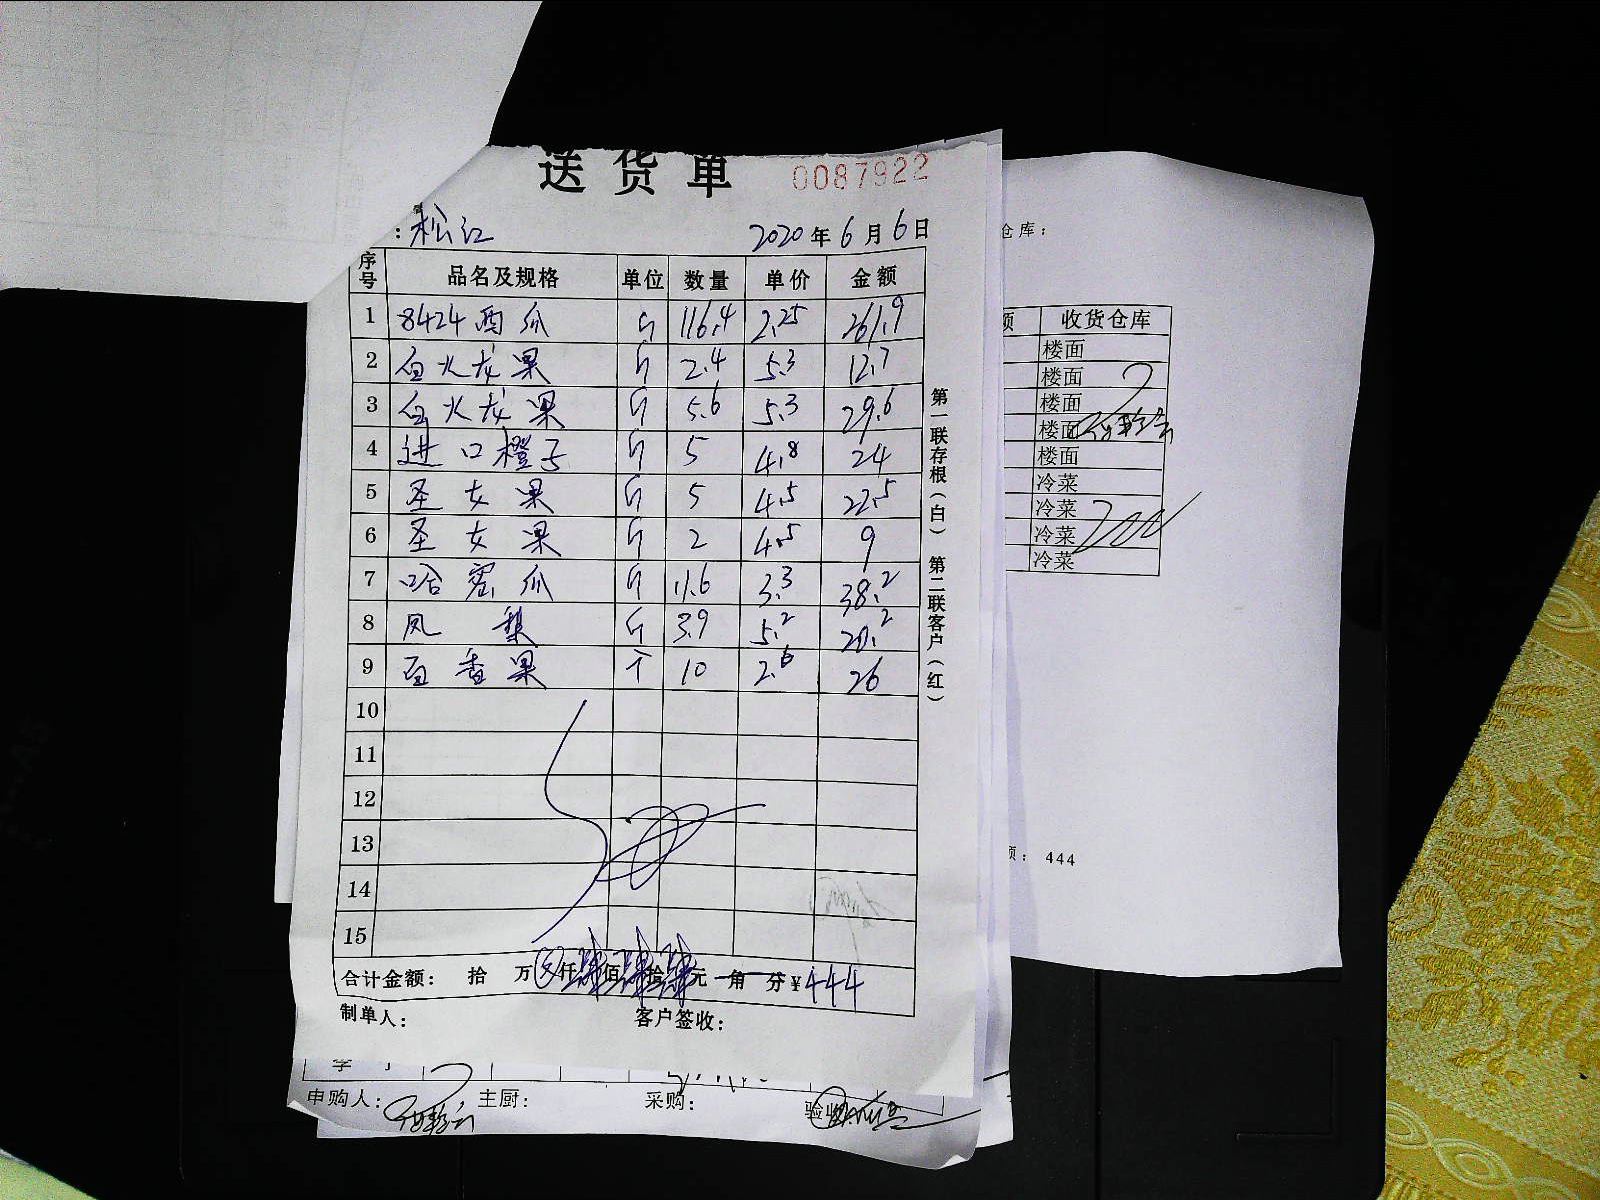 送货单 0087922
：松江 2020年6月6日
序号 品名及规格 单位 数量 单价 金额
1 8424西瓜 斤 116.4 2.25 261.9
2 白火龙果 斤 2.4 5.3 12.7
3 白火龙果 斤 5.6 5.3 29.6
4 进口橙子 斤 5 4.8 24
5 圣女果 斤 5 4.5 22.5
6 圣女果 斤 2 4.5 9
7 哈密瓜 斤 11.6 3.3 38.2
8 凤梨 斤 3.9 5.2 20.2
9 百香果 个 10 2.6 26
10
11
12
13
14
15
合计金额： 拾 万 仟肆佰肆拾肆元 角 分 ¥444
制单人： 客户签收：
第一联存根（白） 第二联客户（红）
申购人： 主厨： 采购： 验收
仓库：
收货仓库
楼面
楼面
楼面
楼面
楼面
冷菜
冷菜
冷菜
冷菜
：444